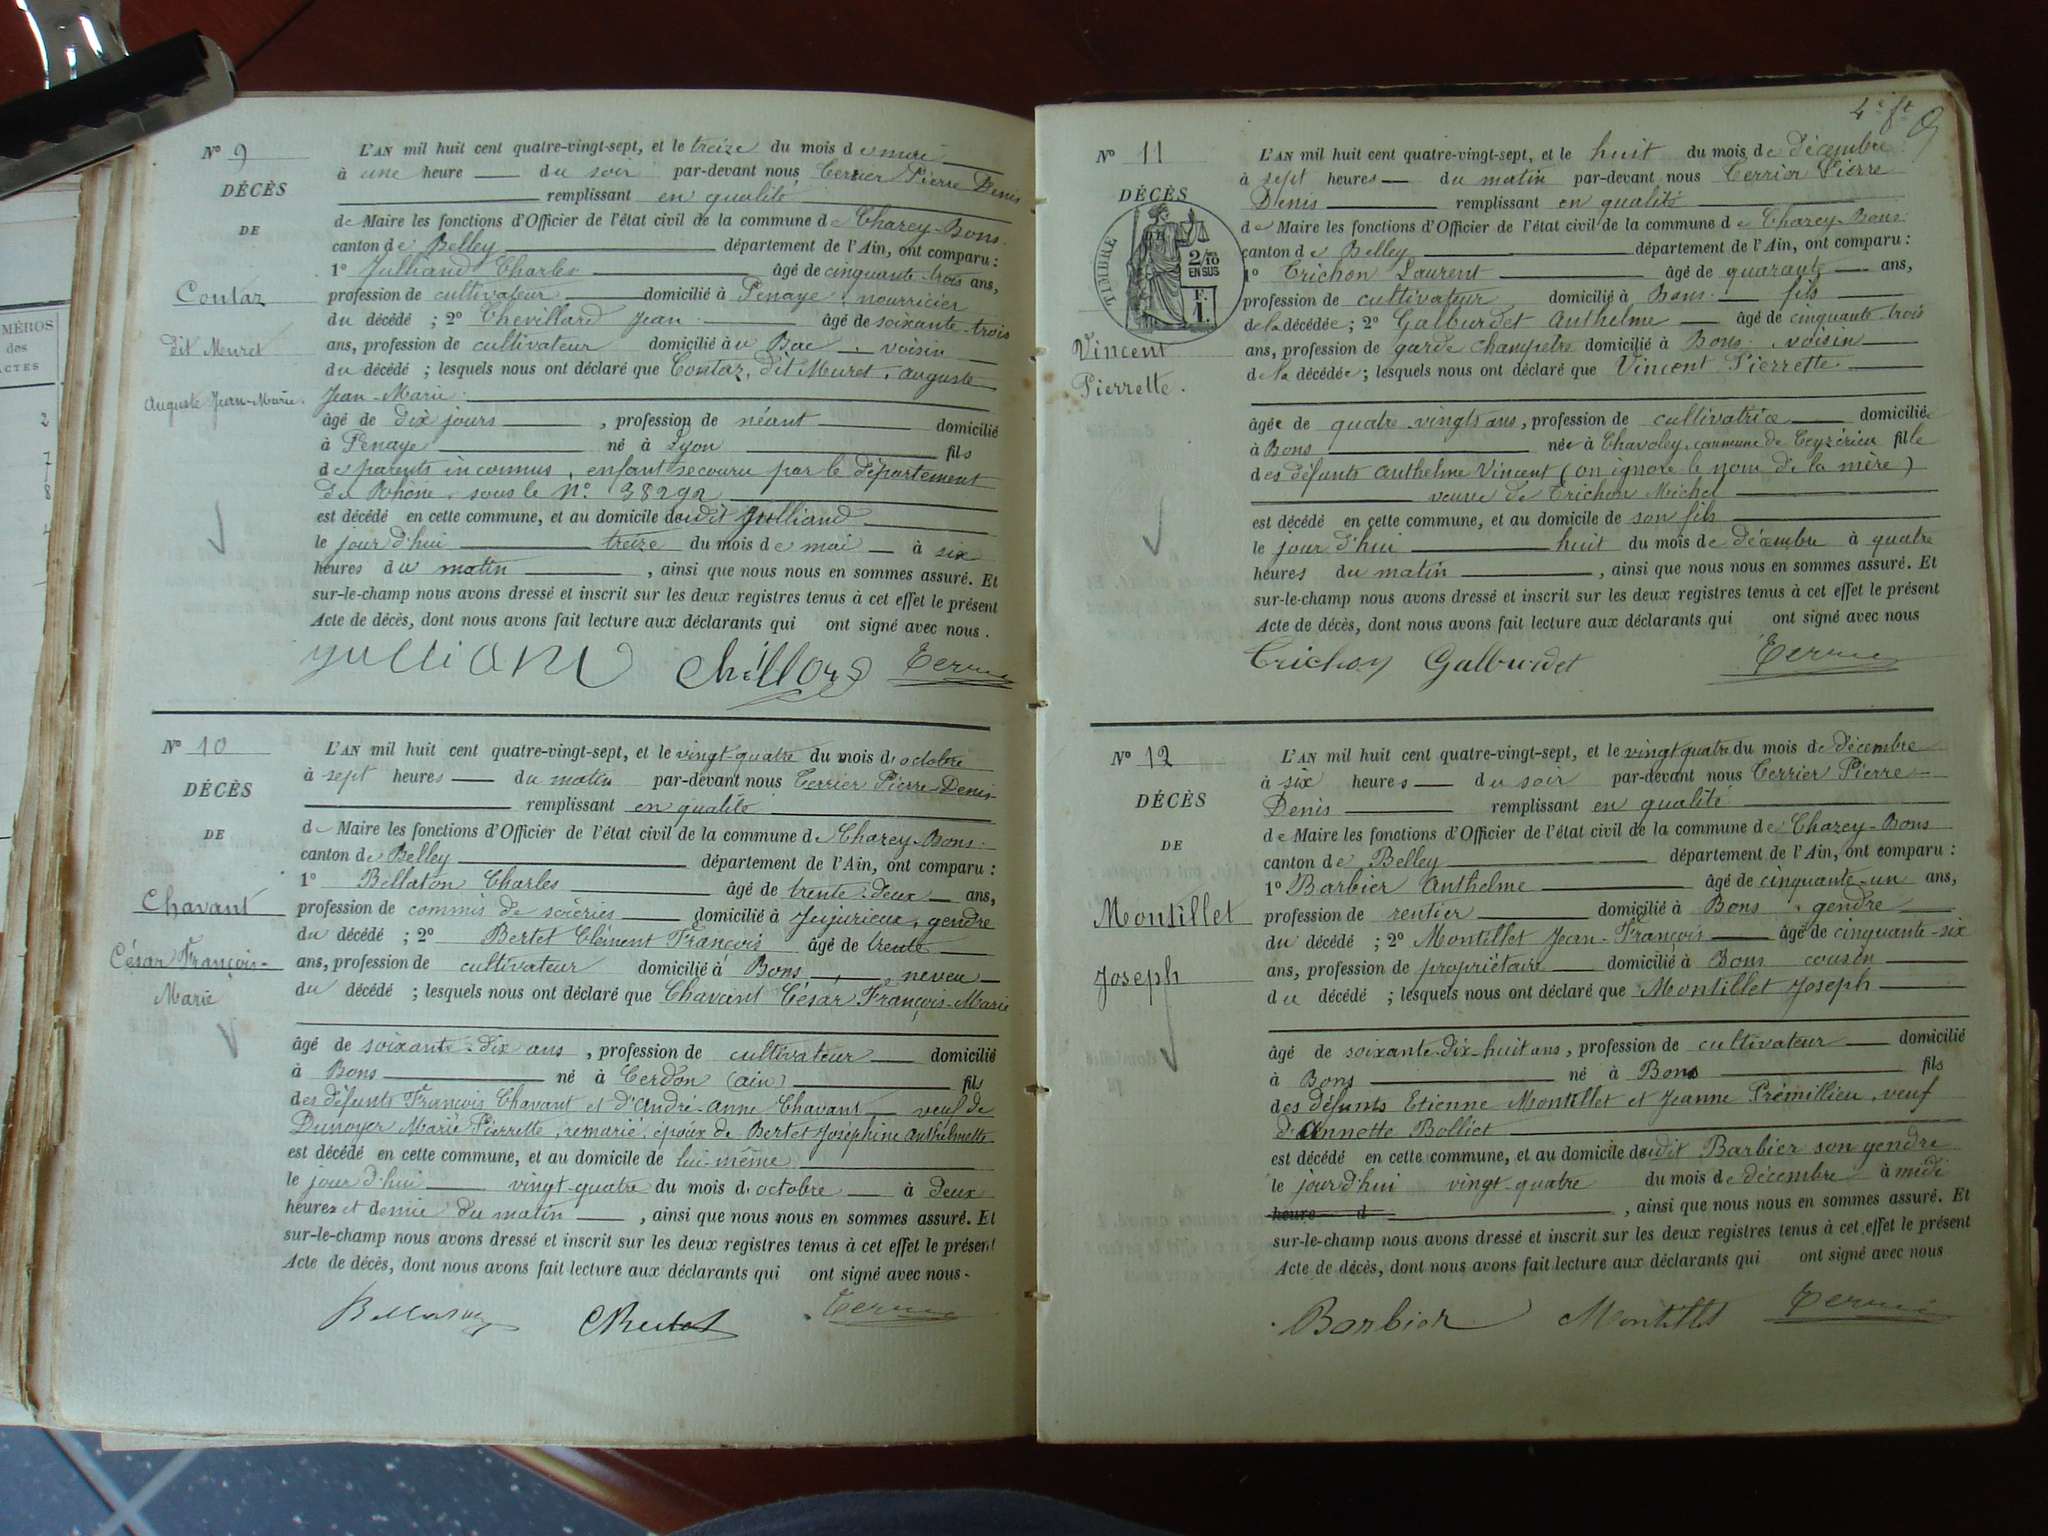 MÉROS
des
ACTES
2
7
8
4
N° 9
DÉCÈS
DE
Contaz
dit Meuret
Auguste Jean-Marie.
L'AN mil huit cent quatre-vingt-sept, et le treize du mois de mai
à une heure du soir par-devant nous Terrier Pierre Denis
remplissant en qualité
de Maire les fonctions d'Officier de l'état civil de la commune de Charey-Bons
canton de Belley département de l'Ain, ont comparu :
1° Julliand Charles âgé de cinquante-trois ans,
profession de cultivateur domicilié à Penaye, nourricier
du décédé ; 2° Chevillard Jean âgé de soixante-trois
ans, profession de cultivateur domicilié au Bac voisin
du décédé ; lesquels nous ont déclaré que Contaz, dit Meuret, auguste
Jean-Marie
âgé de dix jours, profession de néant domicilié
à Penaye né à Lyon fils
de parents inconnus, enfant secouru par le département
du Rhône, sous le N° 38292
est décédé en cette commune, et au domicile dudit Julliand
le jour d'hui treize du mois de mai à six
heures du matin, ainsi que nous nous en sommes assuré. Et
sur-le-champ nous avons dressé et inscrit sur les deux registres tenus à cet effet le présent
Acte de décès, dont nous avons fait lecture aux déclarants qui ont signé avec nous.
Julliand Terrier
N° 10
DÉCÈS
DE
Chavant
César François-
Marie
L'AN mil huit cent quatre-vingt-sept, et le vingt-quatre du mois d'octobre
à sept heures du matin par-devant nous Terrier Pierre Denis
remplissant en qualité
de Maire les fonctions d'Officier de l'état civil de la commune de Charey-Bons
canton de Belley département de l'Ain, ont comparu :
1° Bellaton Charles âgé de trente-deux ans,
profession de commis de soieries domicilié à Jujurieux, gendre
du décédé ; 2° Bertet Clément François âgé de trente
ans, profession de cultivateur domicilié à Bons, neveu
du décédé ; lesquels nous ont déclaré que Chavant César François-Marie
âgé de soixante-dix ans, profession de cultivateur domicilié
à Bons né à Cerdon (ain) fils
des défunts François Chavant et d'André-Anne Chavant, veuf de
Dunoyer Marie Pierrette, remarié, époux de Bertet Joséphine Anthelmette
est décédé en cette commune, et au domicile de lui-même
le jour d'hui vingt-quatre du mois d'octobre à deux
heures et demie du matin, ainsi que nous nous en sommes assuré. Et
sur-le-champ nous avons dressé et inscrit sur les deux registres tenus à cet effet le présent
Acte de décès, dont nous avons fait lecture aux déclarants qui ont signé avec nous.
Bellaton CBertet Terrier
4e ft
N° 11
DÉCÈS
TIMBRE
2/10
EN SUS
F.
1.
Vincent
Pierrette.
L'AN mil huit cent quatre-vingt-sept, et le huit du mois de décembre
à sept heures du matin par-devant nous Terrier Pierre
Denis remplissant en qualité
de Maire les fonctions d'Officier de l'état civil de la commune de Charey-Bons
canton de Belley département de l'Ain, ont comparu :
1° Trichon Laurent âgé de quarante ans,
profession de cultivateur domicilié à Bons fils
de la décédée ; 2° Galburdet Anthelme âgé de cinquante-trois
ans, profession de garde champetre domicilié à Bons, voisin
de la décédée ; lesquels nous ont déclaré que Vincent Pierrette
âgée de quatre-vingts ans, profession de cultivatrice domiciliée
à Bons née à Chavoley, commune de Ceyzérieu fille
des défunts Anthelme Vincent (on ignore le nom de la mère)
veuve de Trichon Michel
est décédé en cette commune, et au domicile de son fils
le jour d'hui huit du mois de décembre à quatre
heures du matin, ainsi que nous nous en sommes assuré. Et
sur-le-champ nous avons dressé et inscrit sur les deux registres tenus à cet effet le présent
Acte de décès, dont nous avons fait lecture aux déclarants qui ont signé avec nous
Trichon Galburdet Terrier
N° 12
DÉCÈS
DE
Montillet
Joseph
L'AN mil huit cent quatre-vingt-sept, et le vingt quatre du mois de décembre
à six heures du soir par-devant nous Terrier Pierre
Denis remplissant en qualité
de Maire les fonctions d'Officier de l'état civil de la commune de Charey-Bons
canton de Belley département de l'Ain, ont comparu :
1° Barbier Anthelme âgé de cinquante-un ans,
profession de rentier domicilié à Bons, gendre
du décédé ; 2° Montillet Jean-François âgé de cinquante-six
ans, profession de propriétaire domicilié à Bons cousin
du décédé ; lesquels nous ont déclaré que Montillet Joseph
âgé de soixante-dix-huit ans, profession de cultivateur domicilié
à Bons né à Bons fils
des défunts Etienne Montillet et Jeanne Prémillieu, veuf
d'Annette Bolliet
est décédé en cette commune, et au domicile dudit Barbier son gendre
le jour d'hui vingt-quatre du mois de décembre à midi
heure d, ainsi que nous nous en sommes assuré. Et
sur-le-champ nous avons dressé et inscrit sur les deux registres tenus à cet effet le présent
Acte de décès, dont nous avons fait lecture aux déclarants qui ont signé avec nous
Barbier Montillet Terrier